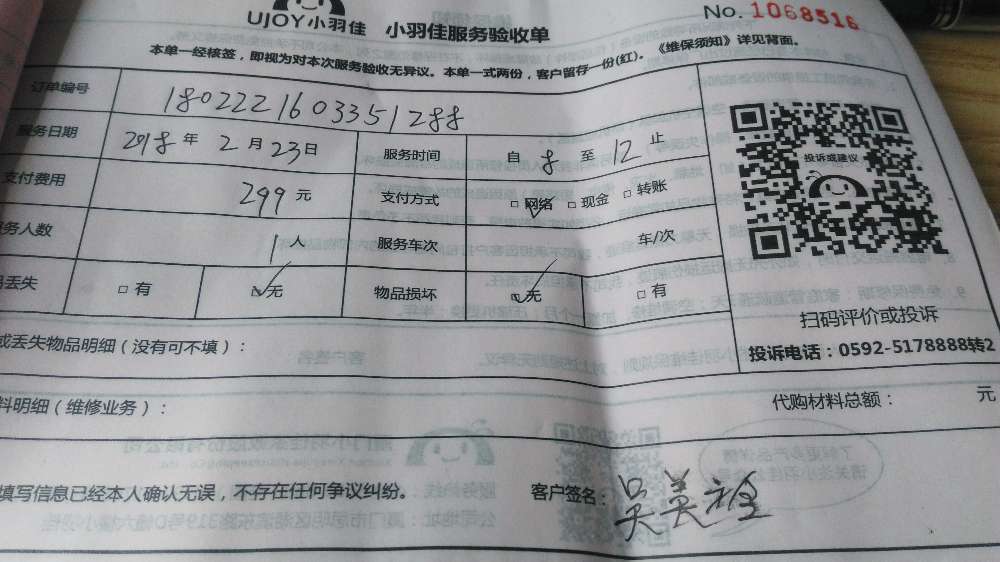 UJOY小羽佳 小羽佳服务验收单 No. 1068516
本单一经核签，即视为对本次服务验收无异议。本单一式两份，客户留存一份(红)。《维保须知》详见背面。
订单编号 180222160335 1288
服务日期 2018 年 2 月 23 日 服务时间 自 8 至 12 止
支付费用 299 元 支付方式 □ 网络 □ 现金 □ 转账
服务人数 1 人 服务车次 车/次
丢失 □ 有 □ 无 物品损坏 □ 无 □ 有
投诉或建议
扫码评价或投诉
投诉电话：0592-5178888转2
或丢失物品明细（没有可不填）：
料明细（维修业务）： 代购材料总额： 元
填写信息已经本人确认无误，不存在任何争议纠纷。 客户签名：吴美